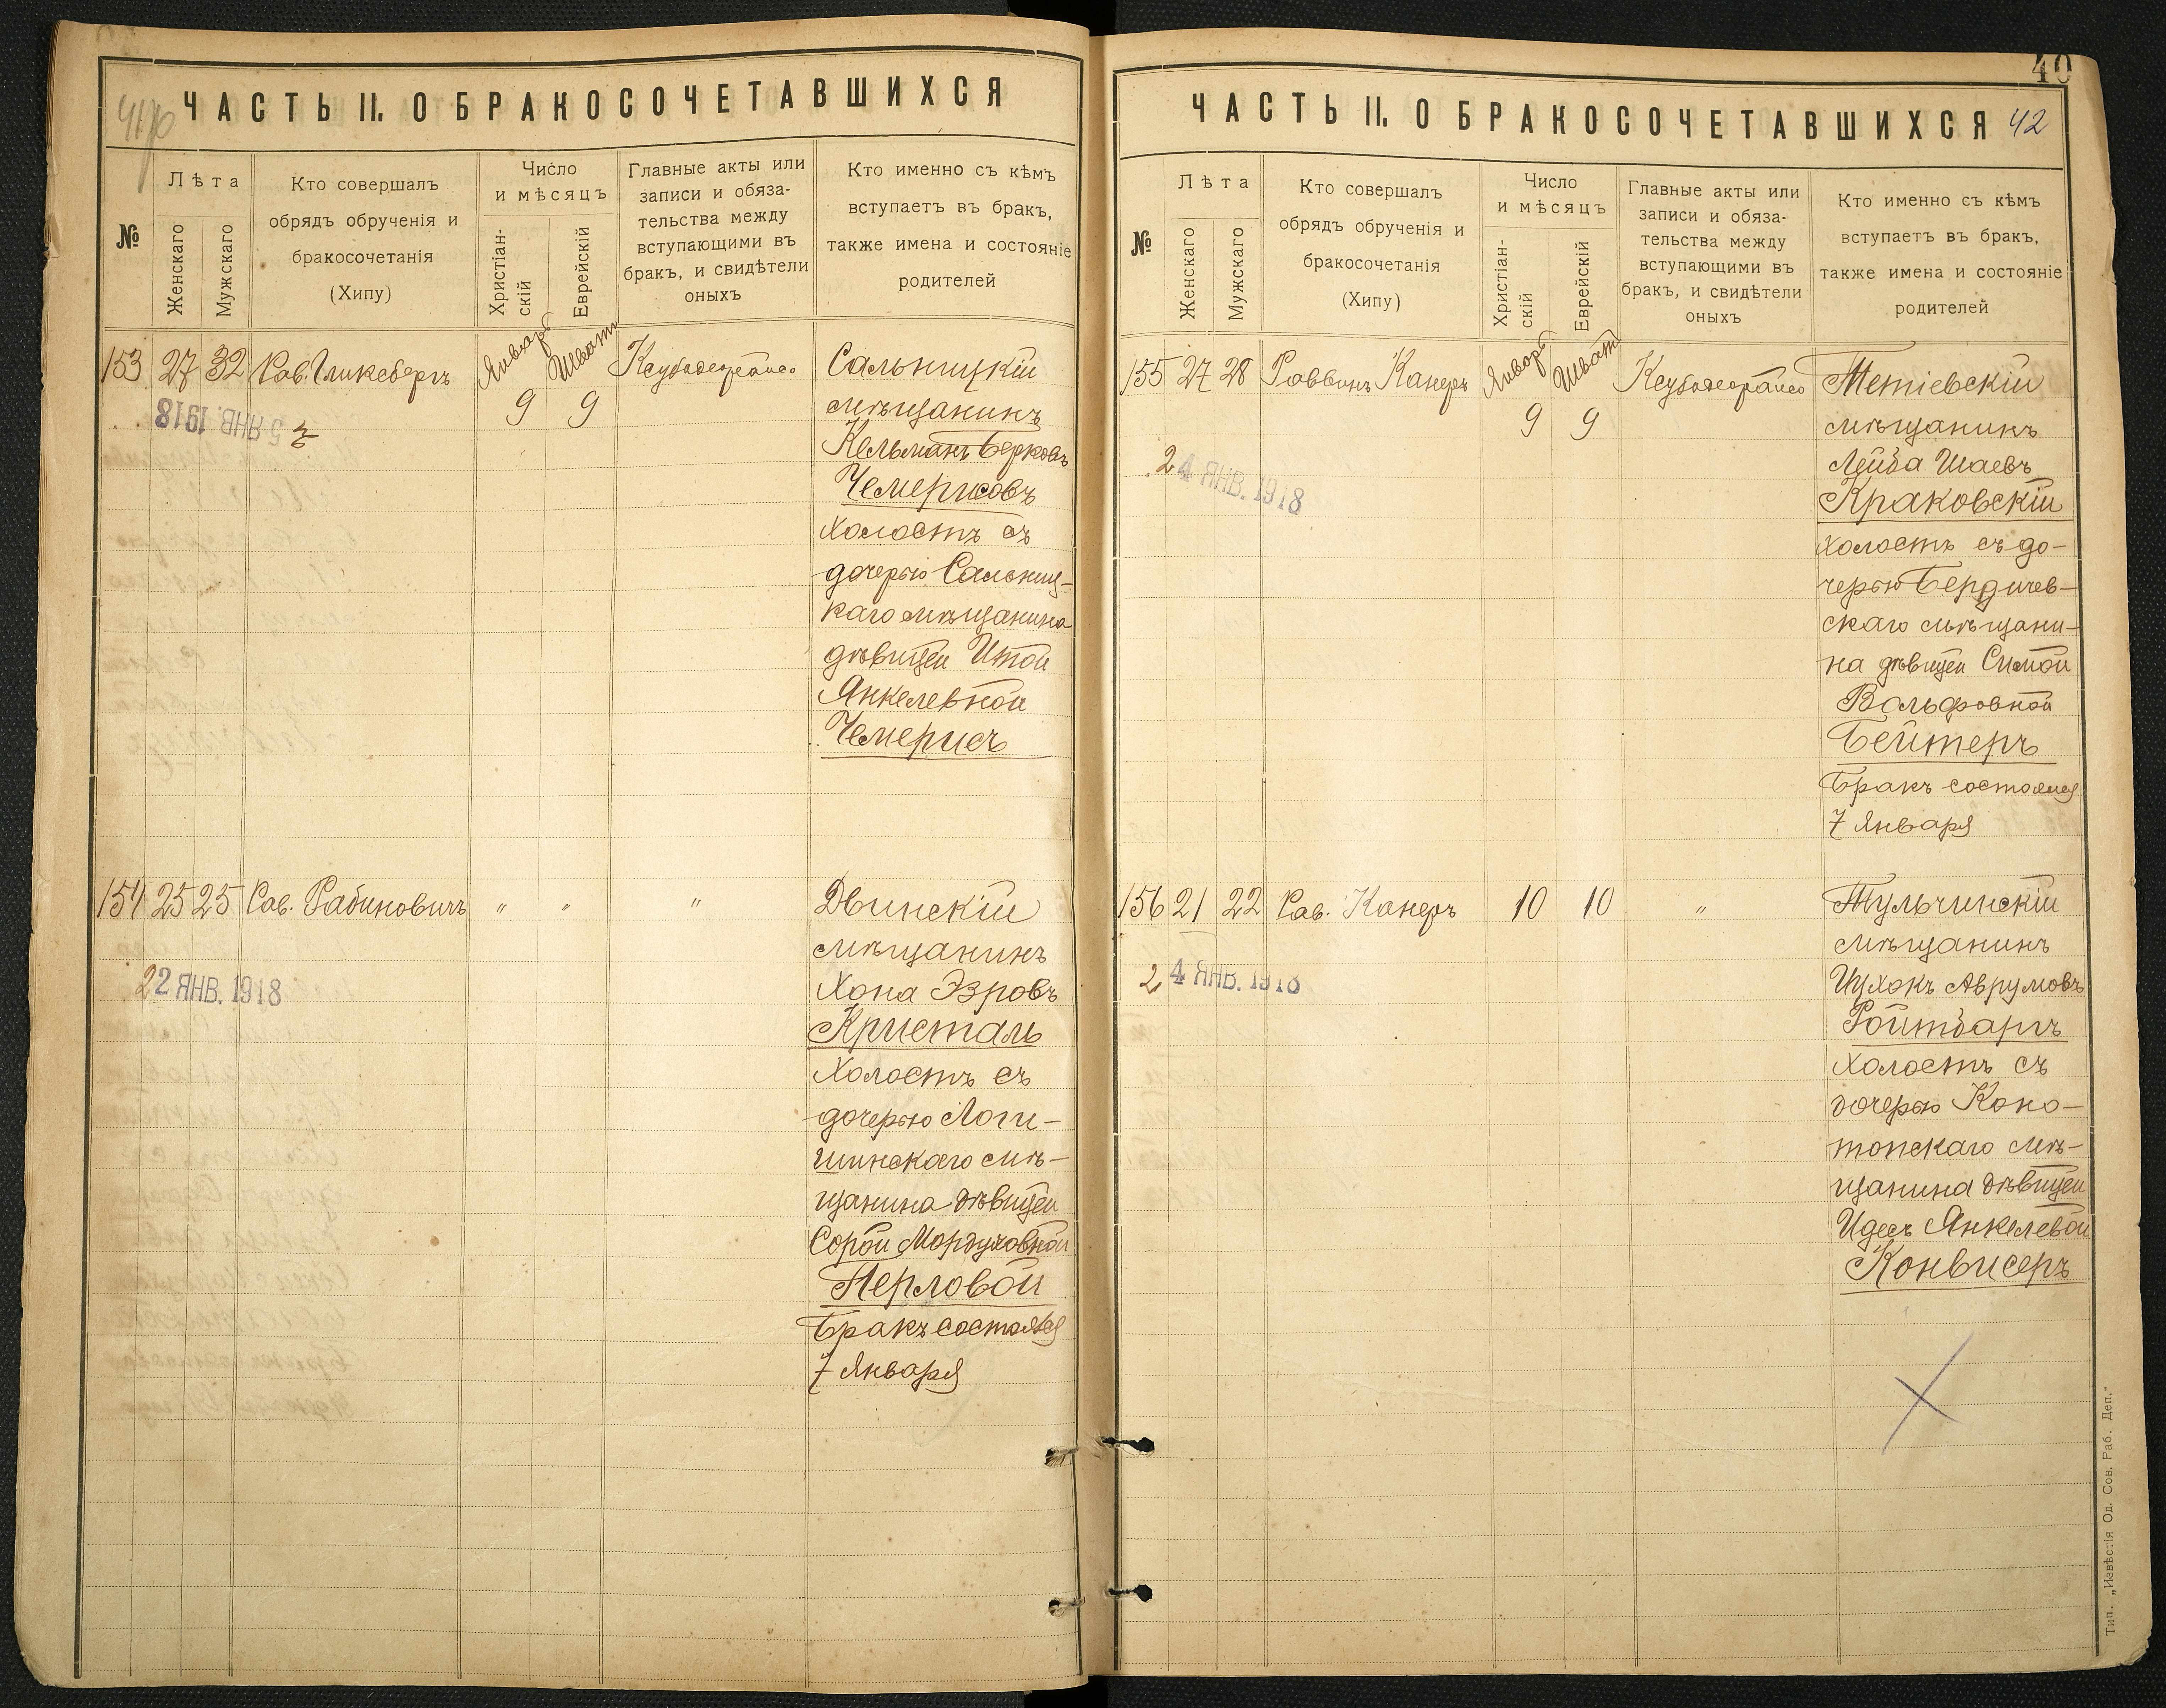 ЧАСТЬ II. О БРАКОСОЧЕТАВШИХСЯ
№
Лѣта
Женскаго
Мужскаго
Кто совершалъ
обрядъ обрученія и
бракосочетанія
(Хипу)
Число
и мѣсяцъ
Христіан-
скій
Еврейскій
Главные акты или
записи и обяза-
тельства между
вступающими въ
бракъ, и свидѣтели
оныхъ
Кто именно съ кѣмъ
вступаетъ въ бракъ,
также имена и состояніе
родителей
153 27 32 Рав. Гликсбергъ
Январь 9
Шватъ 9
5 ЯНВ. 1918
Сальницкій
мѣщанинъ
Кельманъ Берковъ
Чемерисовъ
холостъ съ
дочерью Сальниц-
каго мѣщанина
дѣвицей Итой
Янкелевной
Чемерисъ
154 25 25 Рав. Рабиновичъ " " "
22 ЯНВ. 1918
Двинскій
мѣщанинъ
Хона Эзровъ
Кристаль
холостъ съ
дочерью Логи-
шинскаго мѣ-
щанина дѣвицей
Сорой Мордуховной
Перловой
Бракъ состоялся
7 Января
40
ЧАСТЬ II. О БРАКОСОЧЕТАВШИХСЯ 42
№
Лѣта
Женскаго
Мужскаго
Кто совершалъ
обрядъ обрученія и
бракосочетанія
(Хипу)
Число
и мѣсяцъ
Христіан-
скій
Еврейскій
Главные акты или
записи и обяза-
тельства между
вступающими въ
бракъ, и свидѣтели
оныхъ
Кто именно съ кѣмъ
вступаетъ въ бракъ,
также имена и состояніе
родителей
155 27 28 Раввинъ Канеръ
Январь 9
Шватъ 9
24 ЯНВ. 1918
Тетіевскій
мѣщанинъ
Лейба Шаевъ
Краковскій
холостъ съ до-
черью Бердичев-
скаго мѣщани-
на дѣвицей Симой
Вольфовной
Бейтеръ
Бракъ состоялся
7 Января
156 21 22 Рав. Канеръ 10 10 "
24 ЯНВ. 1918
Тульчинскій
мѣщанинъ
Ицхокъ Аврумовъ
Ройтбаргъ
холостъ съ
дочерью Коно-
топскаго мѣ-
щанина дѣвицей
Идесъ Янкелевой
Конвисеръ
Тип. „Извѣстія Од. Сов. Раб. Деп."